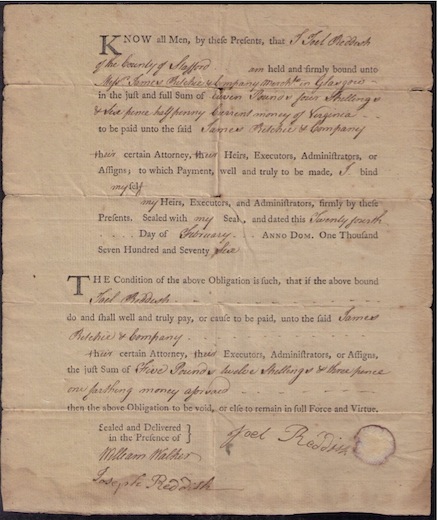 KNOW all Men, by these Presents, that I Joel Reddish
of the County of Stafford am held and firmly bound unto
Messrs. James Ritchie & Company Merchts. in Glasgow
in the just and full Sum of Eleven Pounds four Shillings
& Six pence half penny Current money of Virginia
to be paid unto the said James Ritchie & Company
their certain Attorney, their Heirs, Executors, Administrators, or
Assigns; to which Payment, well and truly to be made, I bind
myself
my Heirs, Executors, and Administrators, firmly by these
Presents. Sealed with my Seal, and dated this Twenty fourth
Day of February ANNO DOM. One Thousand
Seven Hundred and Seventy Six
THE Condition of the above Obligation is such, that if the above bound
Joel Reddish
do and shall well and truly pay, or cause to be paid, unto the said James
Ritchie & Company
their certain Attorney, their Executors, Administrators, or Assigns,
the just Sum of Five Pounds twelve Shillings & three pence
one farthing money aforesaid
then the above Obligation to be void, or else to remain in full Force and Virtue.
Sealed and Delivered
in the Presence of
William Walker
Joseph Reddish
Joel Reddish